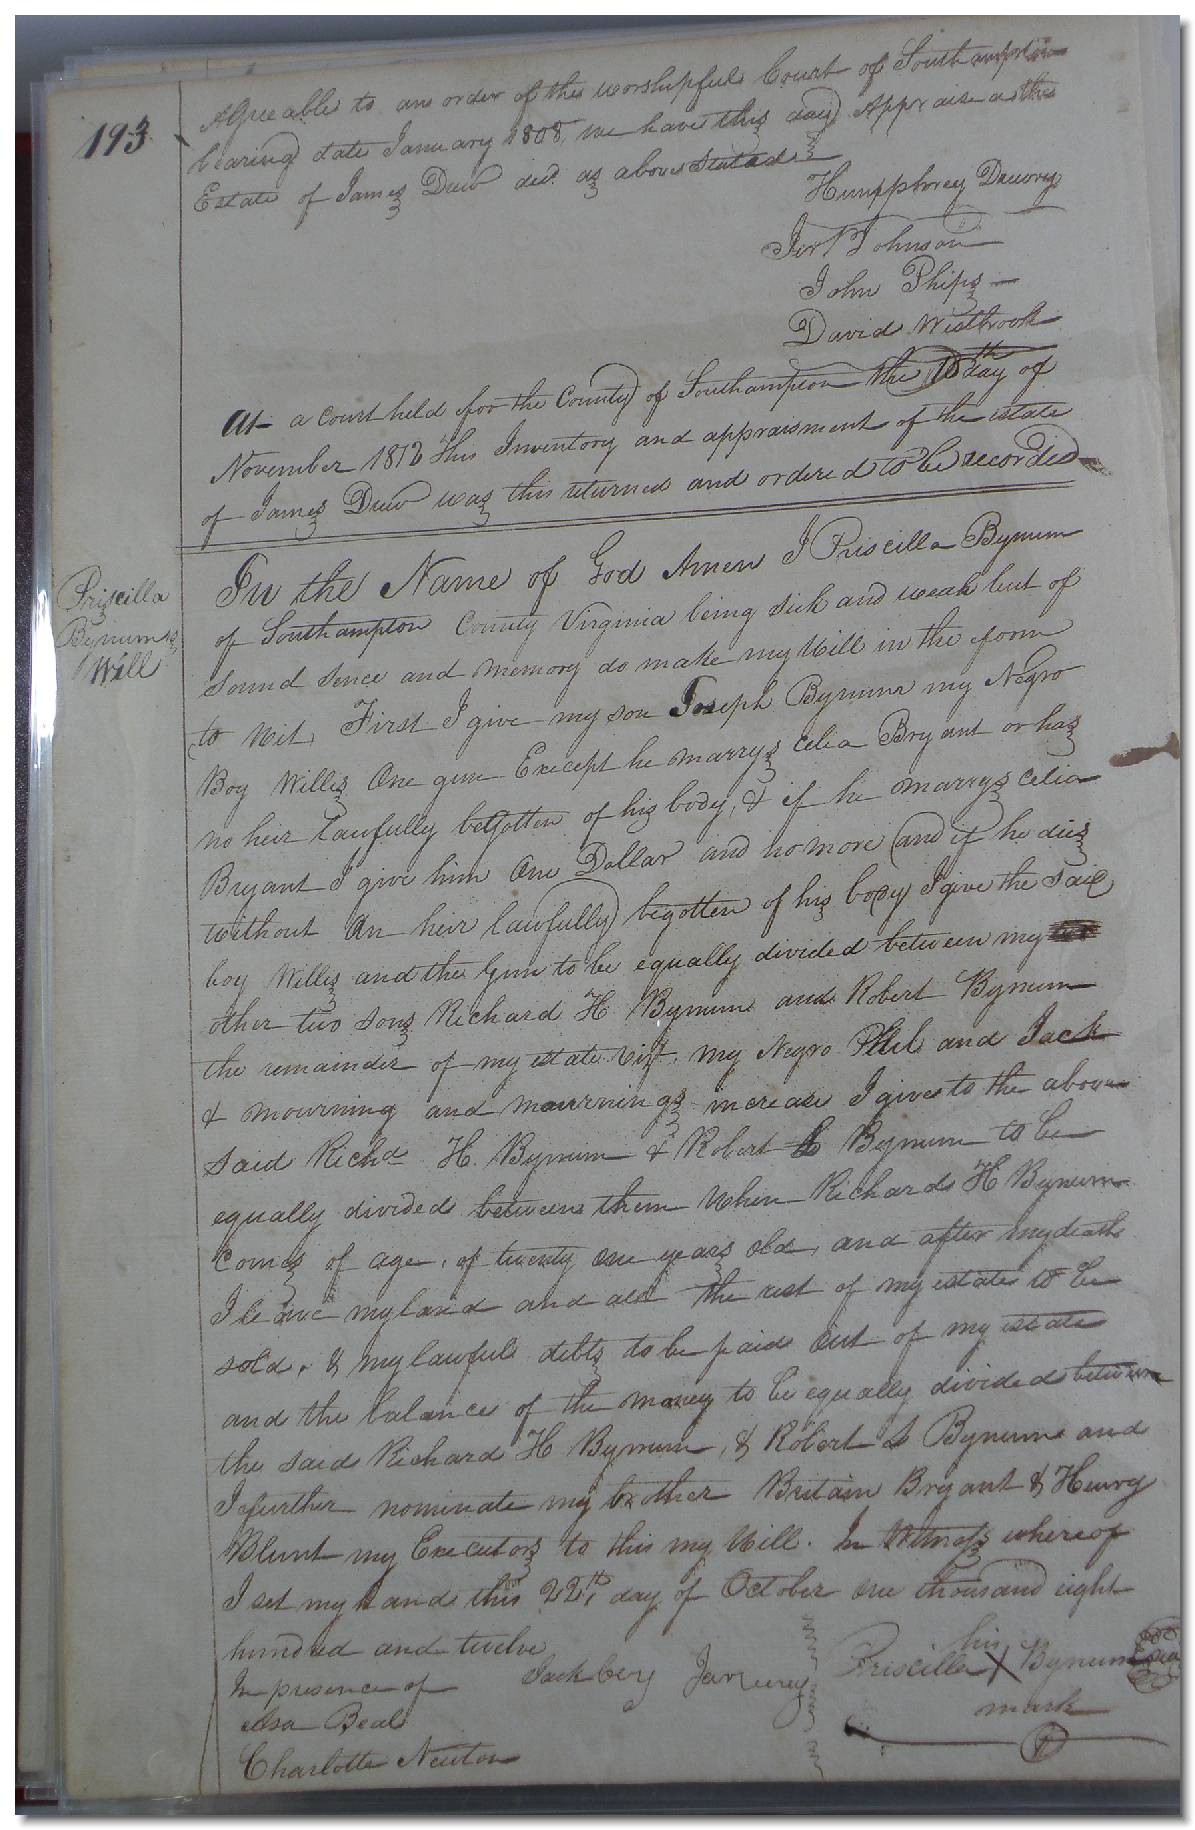 193
Agreeable to an order of the worshipful Court of Southampton
bearing date January 1808, we have this day Appraised the
Estate of James Drew decd. as above stated
Humpphrey Drewry
Johnson
John Phips
David Westbrook
At a court held for the County of Southampton the 16th day of
November 1812 this Inventory and appraisment of the estate
of James Drew was this returned and ordered to be recorded
Priscilla
Bynums
Will
In the Name of God Amen I Priscilla Bynum
of Southampton County Virginia being sick and weak but of
sound sence and memory do make my Will in the form
to Wit, First I give my son Joseph Bynum my Negro
Boy Willis One gun Except he marrys Celia Bryant or has
no heir lawfully begotten of his body, & if he marrys Celia
Bryant I give him One Dollar and no more and if he dies
without An heir lawfully begotten of his body I give the said
boy Willis and the Gun to be equally divided between my
other two sons Richard H Bynum and Robert Bynum
the remainder of my estate my Negro Phil and Jack
& Mourning and Mournings increase I give to the above
said Richd H. Bynum & Robert Bynum to be
equally divided between them When Richard H Bynum
comes of age, of twenty one years old, and after my death
I leave my land and all the rest of my estate to be
sold, & my lawful debts to be paid out of my estate
and the balance of the money to be equally divided between
the said Richard H Bynum, & Robert S Bynum and
I further nominate my brother Britain Bryant & Henry
Blunt my Executors to this my Will. In Witness whereof
I set my hand this 22th, day of October one thousand eight
hundred and twelve
his
In presence of Priscilla X Bynum Seal
mark
Asa Beal
Charlotte Newton